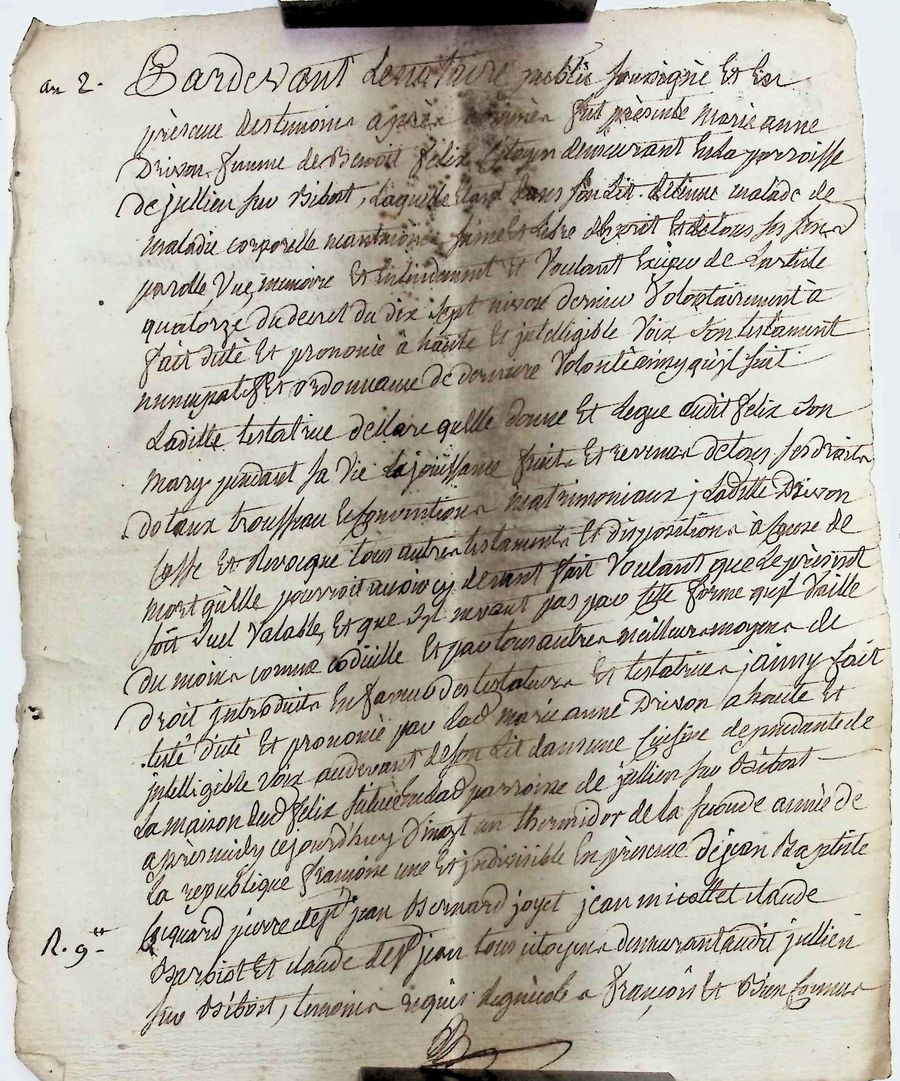 an 2.
Pardevant Le notaire public soussigné Et En
présence des temoins après només fut présente Marie anne
Drivon femme de Benoit felix Citoyen demeurant En la parroisse
de jullien sur Bibost, Laquelle Etant dans son Lit detenue malade de
maladie corporelle neantmoins saine Et Libre d'Esprit Et de tous ses sens
parolle Vue, memoire Et Entendement Et Voulant Exiper de L'article
quatorze du decret du dix sept nivose dernier Volontairement a
fait dicté Et prononcé à haute Et jntelligible Voix Son testament
nuncupatif Et ordonnance de derniere Volonté ainsy qu'jl suit
Laditte testatrice declare qu'elle donne Et legue audit felix Son
mary pendant sa Vie La jouissance fruits Et revenus de tous ses droits
dotaux trousseau Et Conventions matrimoniaux ; Laditte Drivon
Casse Et Revocque tous autres testaments Et dispositions à Cause de
mort qu'elle pourroit avoir cy devant fait Voulant que Le présent
soit Seul Valable, Et que S'jl ne vaut pas par Cette forme qu'jl Vaille
du moins comme codicille Et par tous autres meilleurs moyens de
droit jntroduits En faveur des testateurs Et testatrices, jainsy fait
testé dicté Et prononcé par lad. marie anne Drivon a haute Et
jntelligible Voix au devant de son Lit dans une Cuisine dependante de
La maison dud. felix Située En lad. parroisse de jullien sur Bibost
après midy cejourd'huy Vingt un thermidor de la seconde année de
La republique francoise une Et jndivisible En présence de jean Baptiste
jean Bernard joyet jean micollet claude
R. 9.tt
Et claude jean tous citoyens demeurant audit jullien
sur Bibost, temoins requis françois Et Bien Connus